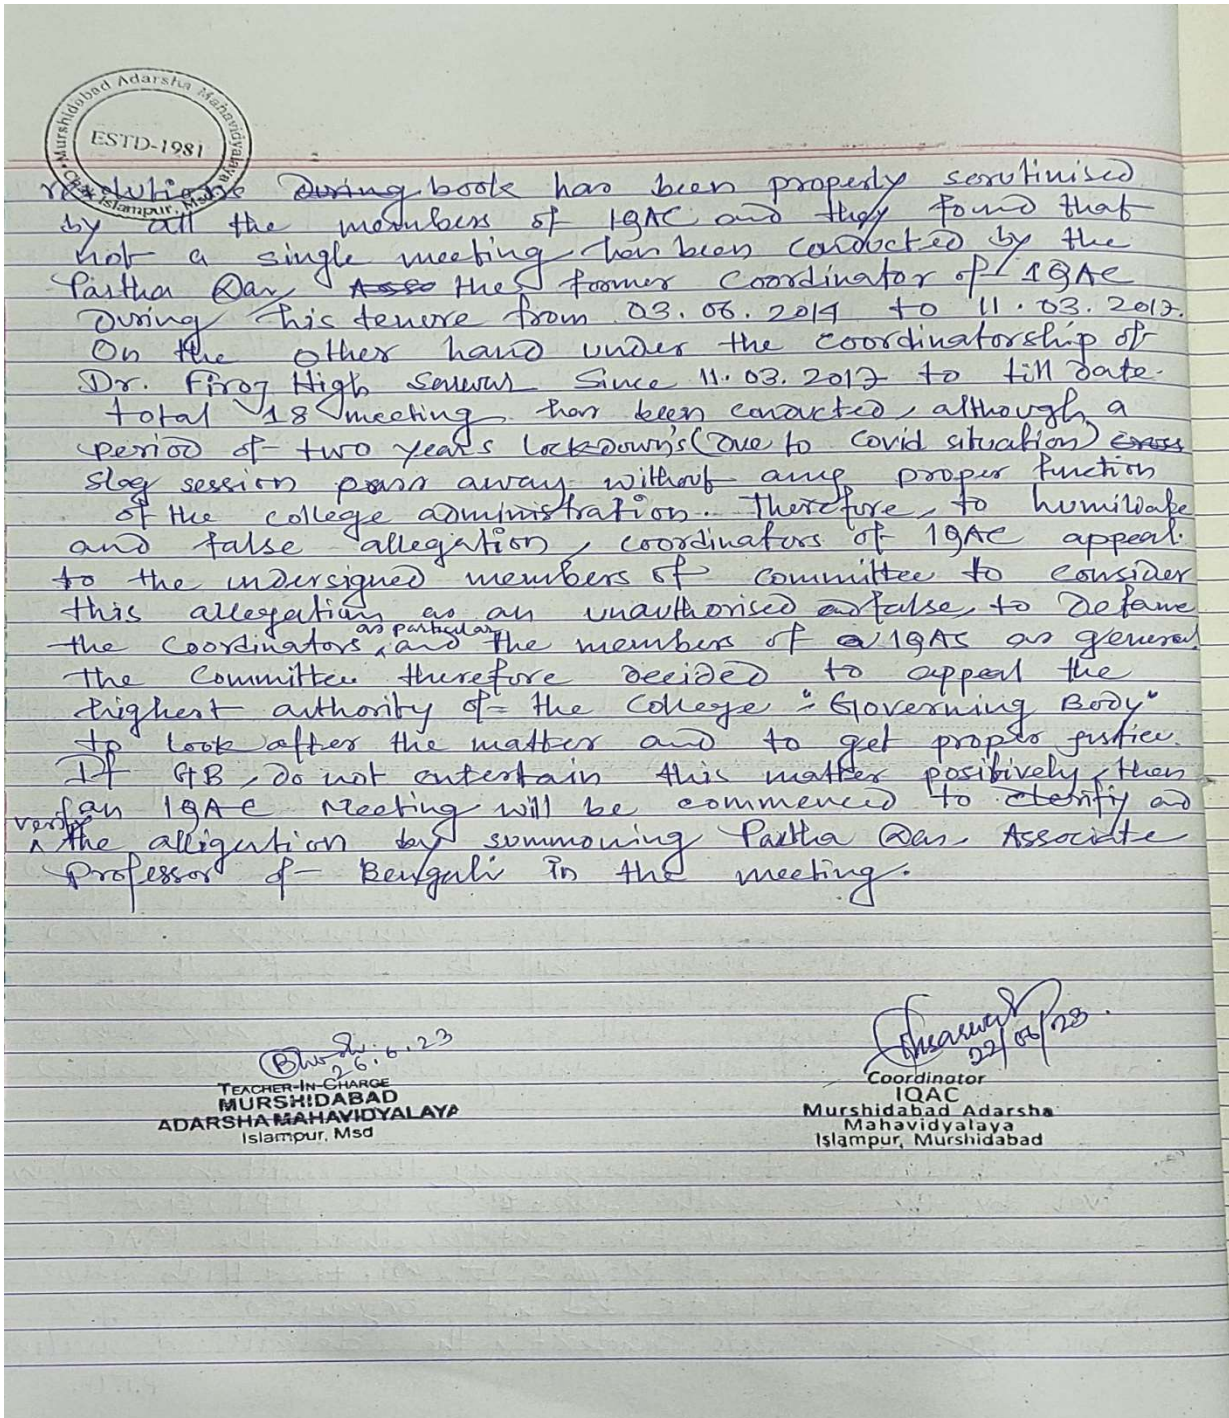 Murshidabad Adarsha Mahavidyalaya
ESTD-1981
Islampur, Msd
resolutions During book has been properly scrutinised
by all the members of IQAC and they found that
not a single meeting has been conducted by the
Partha Das, Asso the former Coordinator of IQAC
During his tenure from 03.06.2014 to 11.03.2017.
On the other hand under the coordinatorship of
Dr. Firoz High Sarwar since 11.03.2017 to till date.
total 18 meeting has been conducted, although a
period of two years lockdown's (due to covid situation)
slog session pass away without any proper function
of the college administration. Therefore, to humiliate
and false allegation, coordinators of IQAC appeal
to the undersigned members of committee to consider
this allegation as an unauthorised false, to Defame
the Coordinators as particular and the members of IQAS as general.
The Committee therefore decided to appeal the
highest authority of the College "Governing Body"
to look after the matter and to get proper justice.
If GB, do not entertain this matter positively, then
an IQAC Meeting will be commenced to clerify and
verify the alligention by summoning Partha Das, Associate
Professor of Bengali in the meeting.
26.6.23
22/06/23.
TEACHER-IN-CHARGE
MURSHIDABAD
ADARSHA MAHAVIDYALAYA
Islampur, Msd
Coordinator
IQAC
Murshidabad Adarsha
Mahavidyalaya
Islampur, Murshidabad